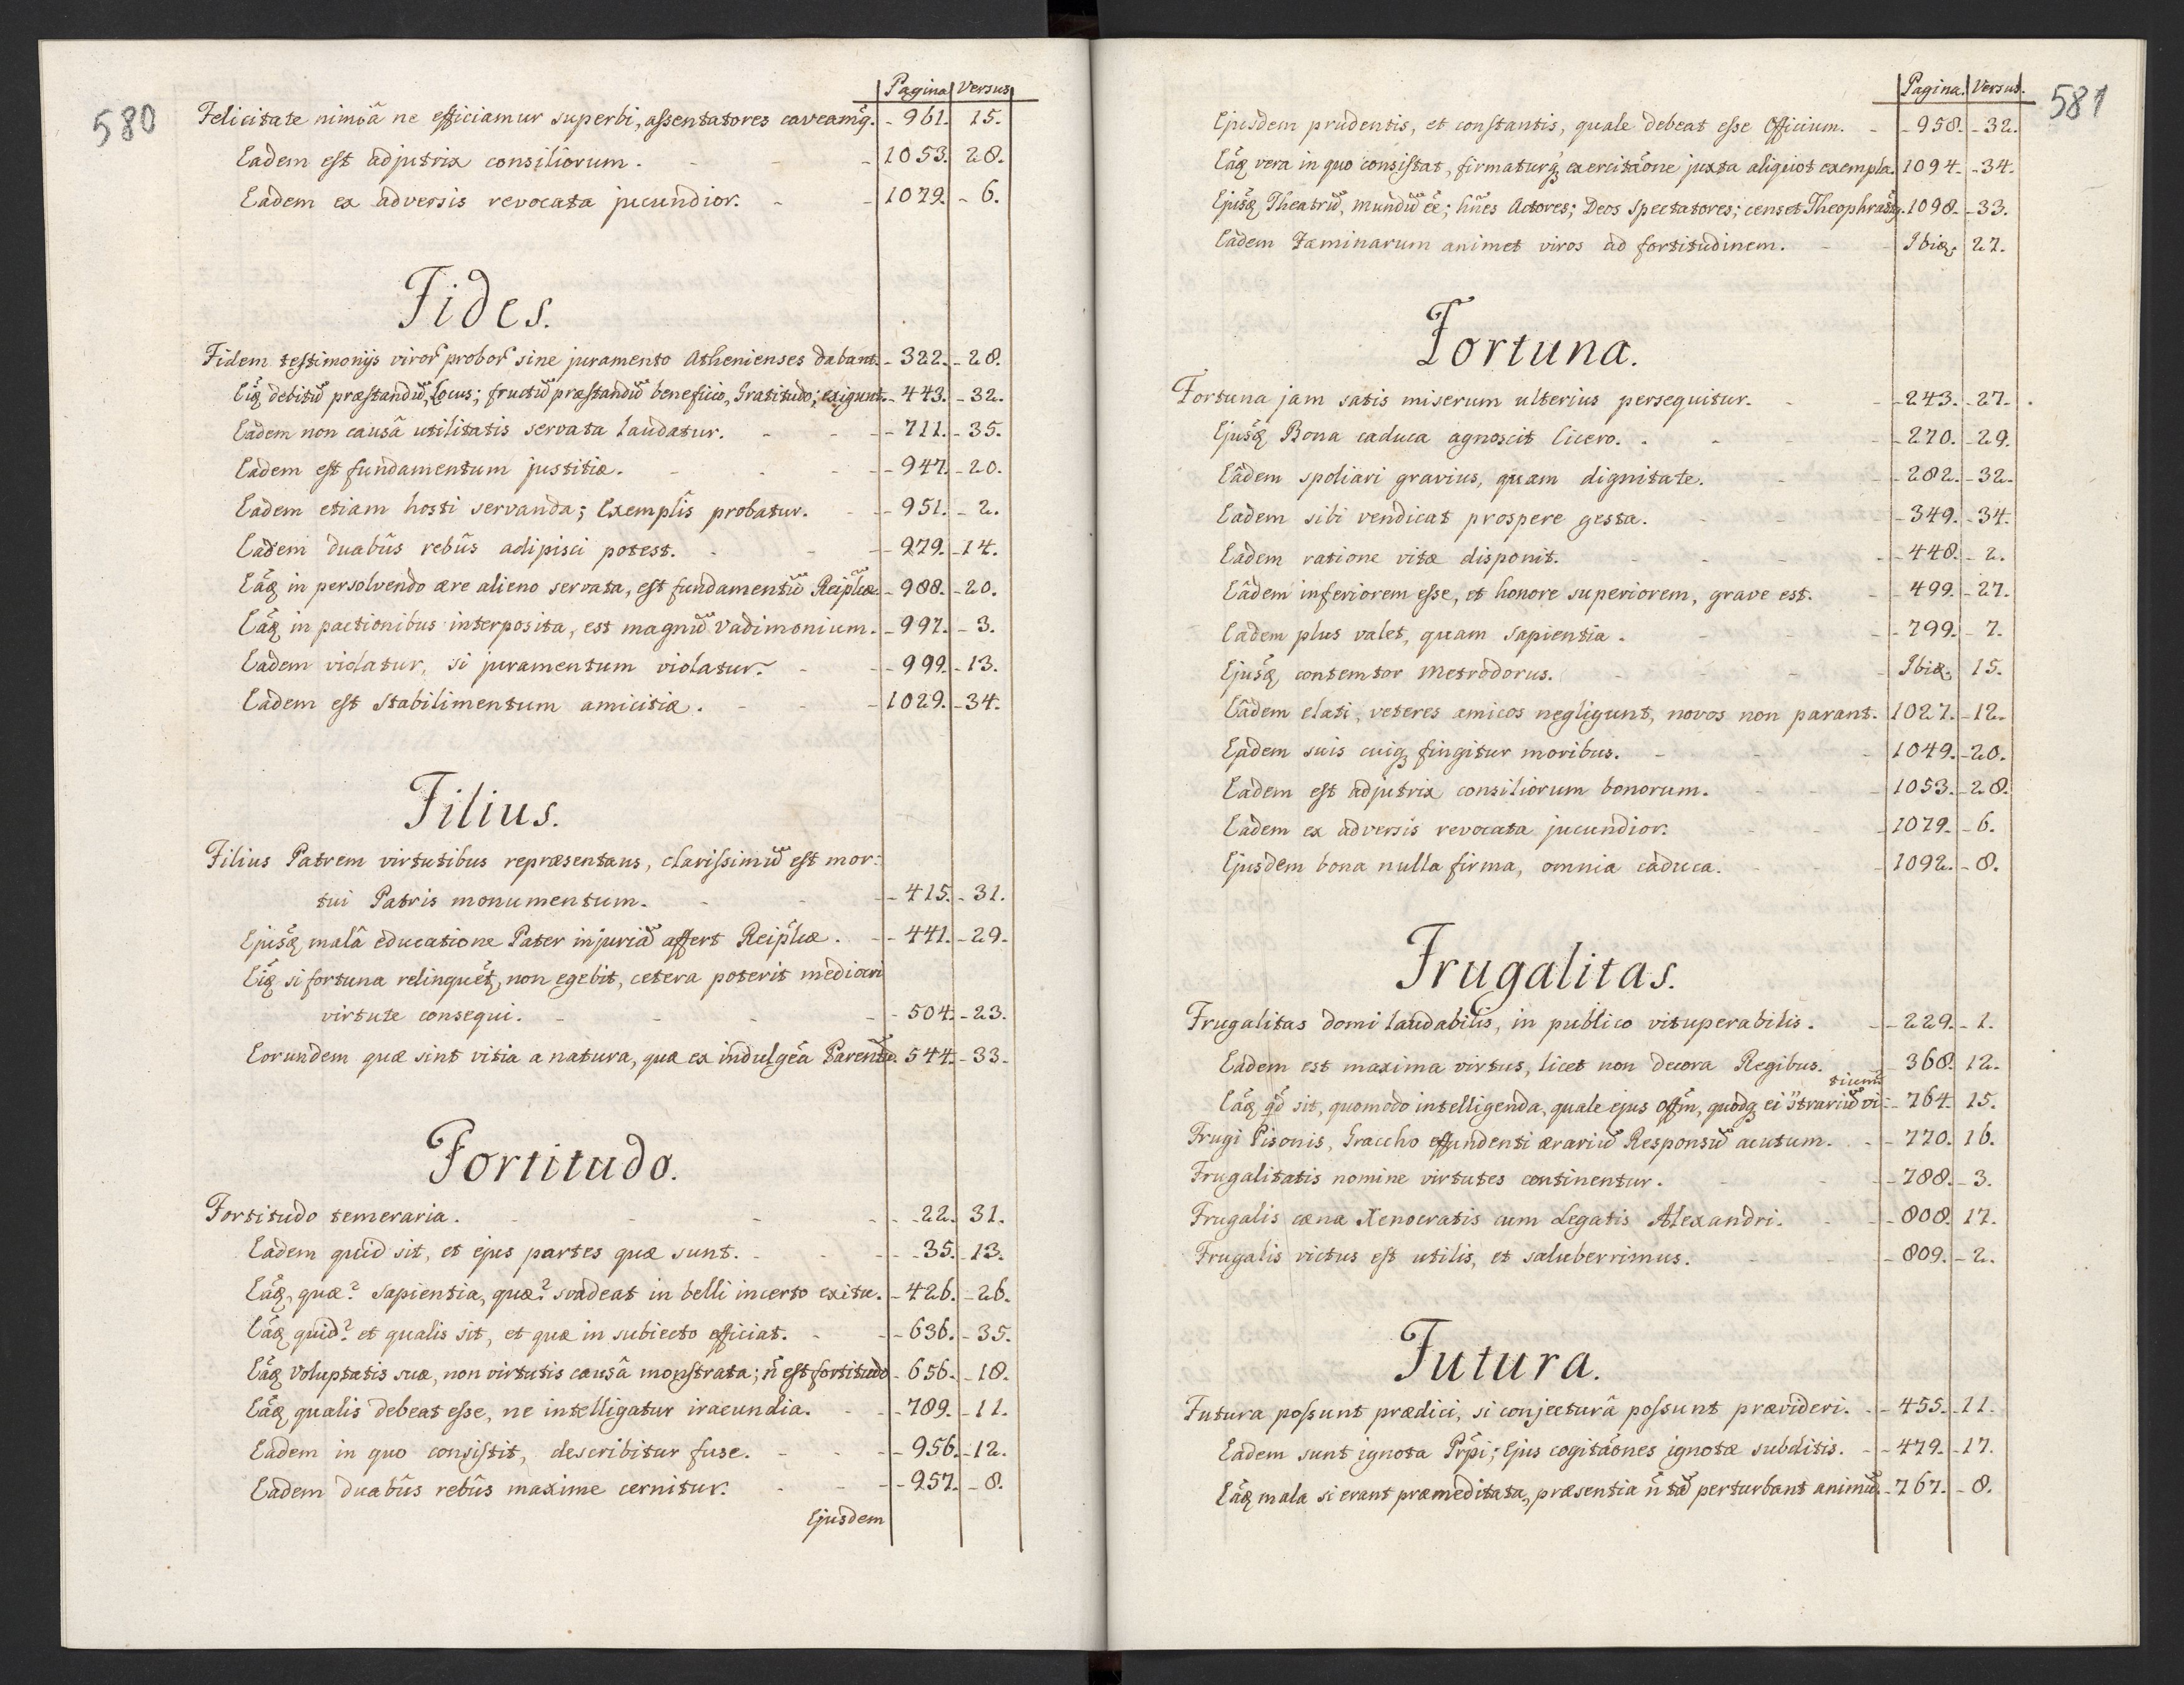 580
Pagina Versus
Felicitate nimiâ ne efficiamur superbi, assentatores caveamq. - 961. 15.
Eadem est adjutrix consiliorum. - 1053. 28.
Eadem ex adversis revocata jucundior. - 1079. - 6.
Fides.
Fidem testimonijs viror probor sine juramento Athenienses dabant. - 322. - 28.
Eiq debitū præstandū, Locus; fructū præstandū beneficio, Gratitudo; exigunt. - 443. - 32.
Eadem non causâ utilitatis servata laudatur. - 711. - 35.
Eadem est fundamentum justitiæ. - 947. - 20.
Eadem etiam hosti servanda; Exemplis probatur. - 951. - 2.
Eadem duabûs rebûs adipisci potest. - 979. - 14.
Eaq in persolvendo ære alieno servata, est fundamentū Reiplicæ. - 988. - 20.
Eaq in pactionibus interposita, est magnū Vadimonium. - 997. - 3.
Eadem violatur, si juramentum violatur. - 999. - 13.
Eadem est stabilimentum amicitiæ. - 1029. - 34.
Filius.
Filius Patrem virtutibus repræsentans, clarissimū est mor=
tui Patris monumentum. - 415. - 31.
Ejusq malâ educatione Pater injuriā affert Reiplicæ. - 441. - 29.
Eiq si fortuna relinquet, non egebit, cetera poterit mediocri
virtute consequi. - 504. - 23.
Eorundem quæ sint vitia a natura, quæ ex indulgea Parentū. 544. - 33.
Fortitudo.
Fortitudo temeraria. - 22. 31.
Eadem quid sit, et ejus partes quæ sunt. - 35. - 13.
Eaq, quæ? sapientia, quæ? svadeat in belli incerto exitu. - 426. - 26.
Eaq quid? et qualis sit, et quæ in subiecto efficiat. - 636. - 35.
Eaq Voluptatis suæ, non virtutis causâ monstrata; n̄ est fortitudo - 656. - 18.
Eaq qualis debeat esse, ne intelligatur iracundia. - 789. - 11.
Eadem in quo consistit, describitur fuse. - 956. - 12.
Eadem duabûs rebûs maxime cernitur. - 957. - 8.
Ejusdem
581
Pagina. Versus.
Ejusdem prudentis, et constantis, quale debeat esse Officium. - 958. - 32.
Eaq vera in quo consistat, firmaturq exercitaone juxta aliquot exempla. 1094. - 34.
Ejusq Theatrū, mundū eē; hnes Actores; Deos Spectatores; censet Theophrastq. 1098. - 33.
Eadem Fæminarum animet viros ad fortitudinem. - Ibiq. 27.
Fortuna.
Fortuna jam satis miserum ulterius persequitur. - 243. - 27.
Ejusq Bona caduca agnoscit Cicero. - 270. - 29.
Eâdem spoliari gravius, quam dignitate. - 282. - 32.
Eadem sibi vendicat prospere gesta. - 349. - 34.
Eadem ratione vitæ disponit. - 448. - 2.
Eâdem inferiorem esse, et honore superiorem, grave est. - 499. - 27.
Eadem plus valet, quam sapientia. - 799. - 7.
Ejusq contemtor Metrodorus. - Ibiq. 15.
Eâdem elati, veteres amicos negligunt, novos non parant. 1027. - 12.
Eadem suis cuiq fingitur moribus. - 1049. - 20.
Eadem est adjutrix consiliorum bonorum. - 1053. - 28.
Eadem ex adversis revocata jucundior. - 1079. - 6.
Ejusdem bona nulla firma, omnia caduca. - 1092. - 8.
Frugalitas.
Frugalitas domi laudabilis, in publico vituperabilis. - 229. - 1.
Eadem est maxima virtus, licet non decora Regibus. 368. 12.
tium
Eaq qd sit, quomodo intelligenda, quale ejus Offm, quodq ei strariū vi= - 764. 15.
Frugi Pisonis, Graccho effundenti ærariū Responsū acutum. - 770. 16.
Frugalitatis nomine virtutes continentur. - 788. - 3.
Frugalis cæna Xenocratis cum Legatis Alexandri. - 808. 17.
Frugalis victus est utilis, et saluberrimus. - 809. - 2.
Futura.
Futura possunt prædici, si conjecturâ possunt prævideri. - 455. - 11.
Eadem sunt ignota Prpi; Ejus cogitaones ignotæ subditis. - 479. - 17.
Eaq mala si erant præmeditata, præsentia n̄ tā perturbant animū. - 767. - 8.